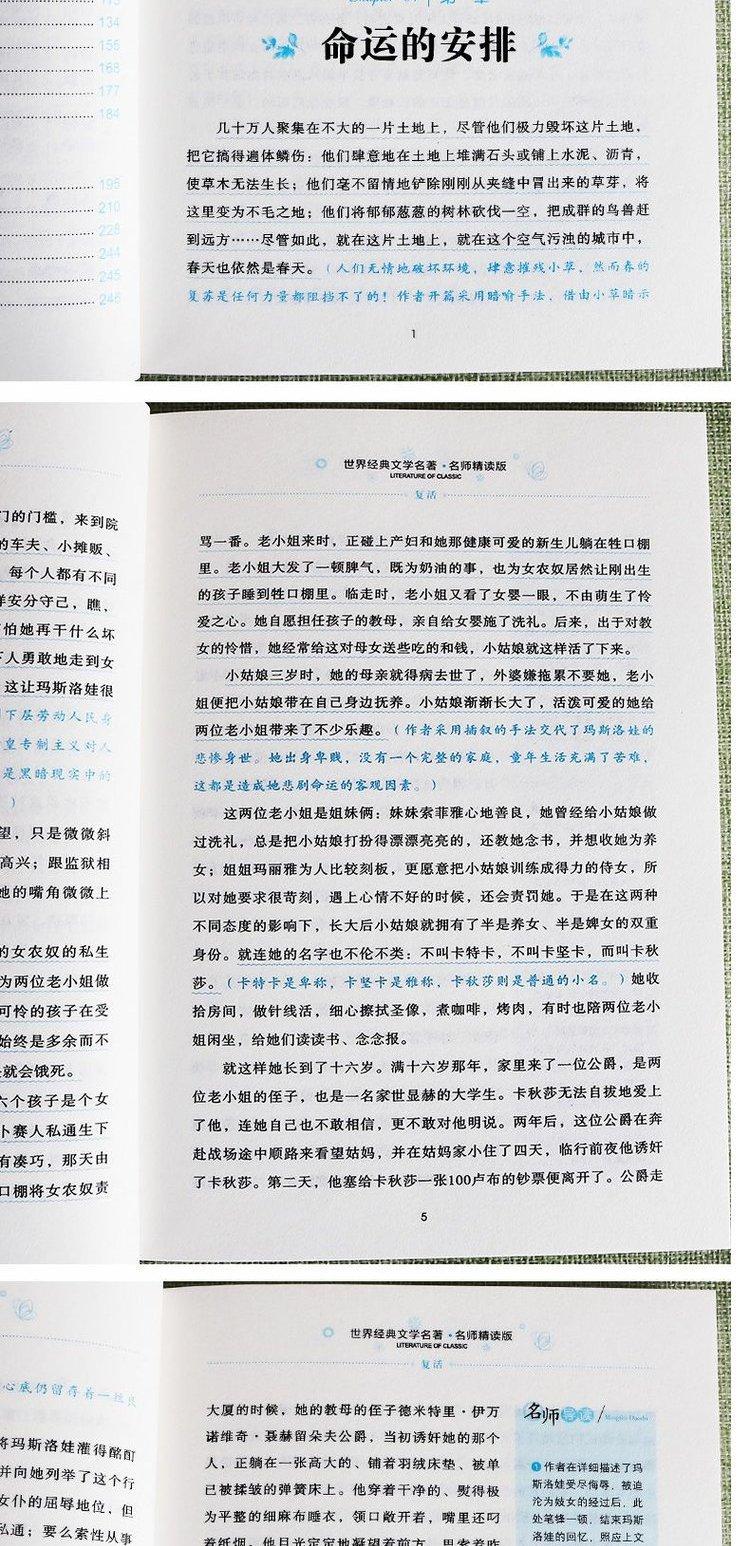 134
156
168
177
184
195
210
228
244
245
246
命运的安排
几十万人聚集在不大的一片土地上，尽管他们极力毁坏这片土地，
把它搞得遍体鳞伤：他们肆意地在土地上堆满石头或铺上水泥、沥青，
使草木无法生长；他们毫不留情地铲除刚刚从夹缝中冒出来的草芽，将
这里变为不毛之地；他们将郁郁葱葱的树林砍伐一空，把成群的鸟兽赶
到远方……尽管如此，就在这片土地上，就在这个空气污浊的城市中，
春天也依然是春天。（人们无情地破坏环境，肆意摧残小草，然而春的
复苏是任何力量都阻挡不了的！作者开篇采用暗喻手法，借由小草暗示
1
门的门槛，来到院
的车夫、小摊贩、
每个人都有不同
样安分守己，瞧，
怕她再干什么坏
下人勇敢地走到女
这让玛斯洛娃很
下层劳动人民身
皇专制主义对人
是黑暗现实中的
）
望，只是微微斜
高兴；跟监狱相
她的嘴角微微上
的女农奴的私生
为两位老小姐做
可怜的孩子在受
始终是多余而不
就会饿死。
六个孩子是个女
卜赛人私通生下
有凑巧，那天由
口棚将女农奴责
世界经典文学名著·名师精读版
LITERATURE OF CLASSIC
复活
骂一番。老小姐来时，正碰上产妇和她那健康可爱的新生儿躺在牲口棚
里。老小姐大发了一顿脾气，既为奶油的事，也为女农奴居然让刚出生
的孩子睡到牲口棚里。临走时，老小姐又看了女婴一眼，不由萌生了怜
爱之心。她自愿担任孩子的教母，亲自给女婴施了洗礼。后来，出于对教
女的怜惜，她经常给这对母女送些吃的和钱，小姑娘就这样活了下来。
小姑娘三岁时，她的母亲就得病去世了，外婆嫌拖累不要她，老小
姐便把小姑娘带在自己身边抚养。小姑娘渐渐长大了，活泼可爱的她给
两位老小姐带来了不少乐趣。（作者采用插叙的手法交代了玛斯洛娃的
悲惨身世。她出身卑贱，没有一个完整的家庭，童年生活充满了苦难，
这都是造成她悲剧命运的客观因素。）
这两位老小姐是姐妹俩：妹妹索菲雅心地善良，她曾经给小姑娘做
过洗礼，总是把小姑娘打扮得漂漂亮亮的，还教她念书，并想收她为养
女；姐姐玛丽雅为人比较刻板，更愿意把小姑娘训练成得力的侍女，所
以对她要求很苛刻，遇上心情不好的时候，还会责罚她。于是在这两种
不同态度的影响下，长大后小姑娘就拥有了半是养女、半是婢女的双重
身份。就连她的名字也不伦不类：不叫卡特卡，不叫卡坚卡，而叫卡秋
莎。（卡特卡是卑称，卡坚卡是雅称，卡秋莎则是普通的小名。）她收
拾房间，做针线活，细心擦拭圣像，煮咖啡，烤肉，有时也陪两位老小
姐闲坐，给她们读读书、念念报。
就这样她长到了十六岁。满十六岁那年，家里来了一位公爵，是两
位老小姐的侄子，也是一名家世显赫的大学生。卡秋莎无法自拔地爱上
了他，连她自己也不敢相信，更不敢对他明说。两年后，这位公爵在奔
赴战场途中顺路来看望姑妈，并在姑妈家小住了四天，临行前夜他诱奸
了卡秋莎。第二天，他塞给卡秋莎一张100卢布的钞票便离开了。公爵走
5
心底仍留存着一丝良
将玛斯洛娃灌得酩酊
并向她列举了这个行
女仆的屈辱地位，但
私通；要么索性从事
世界经典文学名著·名师精读版
LITERATURE OF CLASSIC
复活
大厦的时候，她的教母的侄子德米特里·伊万
诺维奇·聂赫留朵夫公爵，当初诱奸她的那个
人，正躺在一张高大的、铺着羽绒床垫、被单
已被揉皱的弹簧床上。他穿着干净的、熨得极
为平整的细麻布睡衣，领口敞开着，嘴里还叼
着纸烟。他目光定定地凝望着前方，思索着昨
名师导读
1 作者在详细描述了玛
斯洛娃受尽侮辱、被迫
沦为妓女的经过后，此
处笔锋一顿，结束玛斯
洛娃的回忆，照应上文